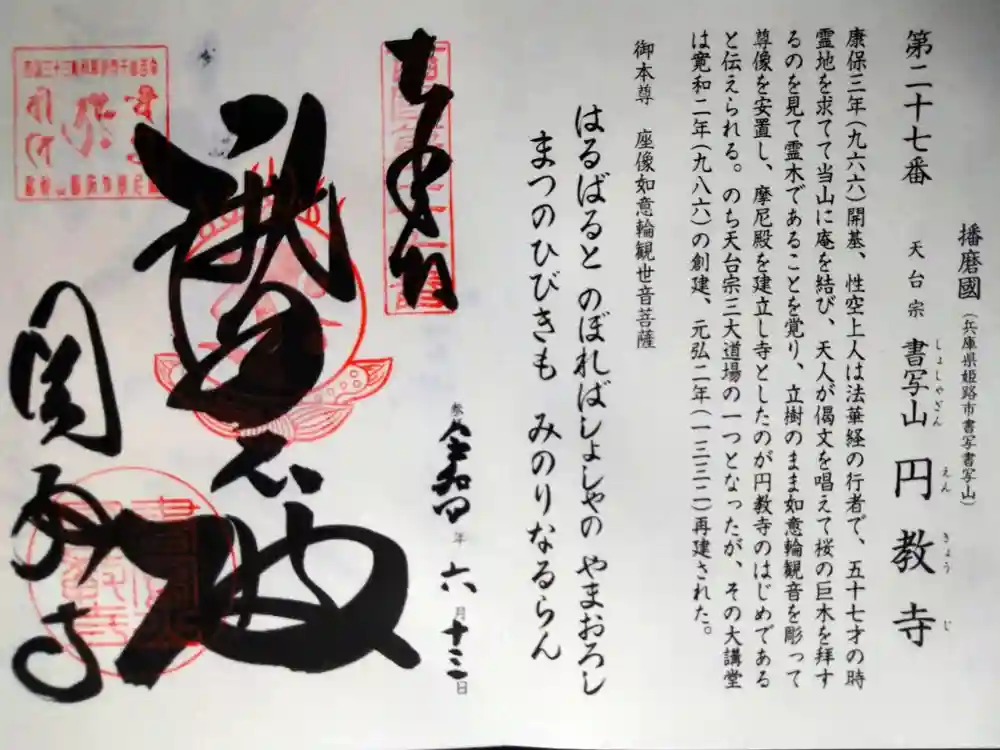 播磨國(兵庫県姫路市書写書写山)
第二十七番 天台宗 書写山 円教寺
しょしゃざん えんきょうじ
康保三年(九六六)開基、性空上人は法華経の行者で、五十七才の時
霊地を求てて当山に庵を結び、天人が偈文を唱えて桜の巨木を拝す
るのを見て霊木であることを覚り、立樹のまま如意輪観音を彫って
尊像を安置し、摩尼殿を建立し寺としたのが円教寺のはじめである
と伝えられる。のち天台宗三大道場の一つとなったが、その大講堂
は寛和二年(九八六)の創建、元弘二年(一三三二)再建された。
御本尊 座像如意輪観世音菩薩
はるばると のぼればしょしゃの やまおろし
まつのひびきも みのりなるらん
令和四年六月十三日